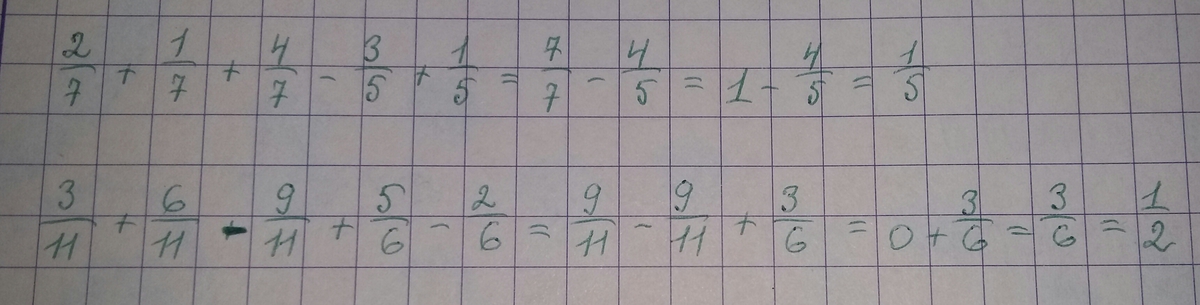 2/7 + 1/7 + 4/7 - 3/5 + 1/5 = 7/7 - 4/5 = 1 - 4/5 = 1/5
3/11 + 6/11 - 9/11 + 5/6 - 2/6 = 9/11 - 9/11 + 3/6 = 0 + 3/6 = 3/6 = 1/2